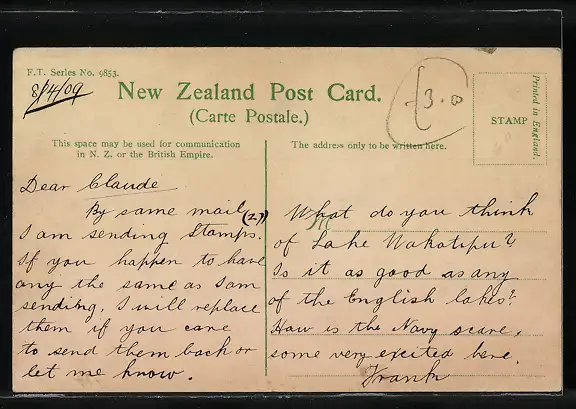 F.T. Series No. 9853.
8/4/09
New Zealand Post Card.
(Carte Postale.)
£3.0
STAMP
Printed in England.
This space may be used for communication
in N. Z. or the British Empire.
The address only to be written here.
Dear Claude
By same mail (27)
I am sending Stamps.
If you happen to have
any the same as I am
sending, I will replace
them if you care
to send them back or
let me know.
M
What do you think
of Lake Wakatipu?
Is it as good as any
of the English lakes?
How is the Navy scare,
some very excited here.
Frank